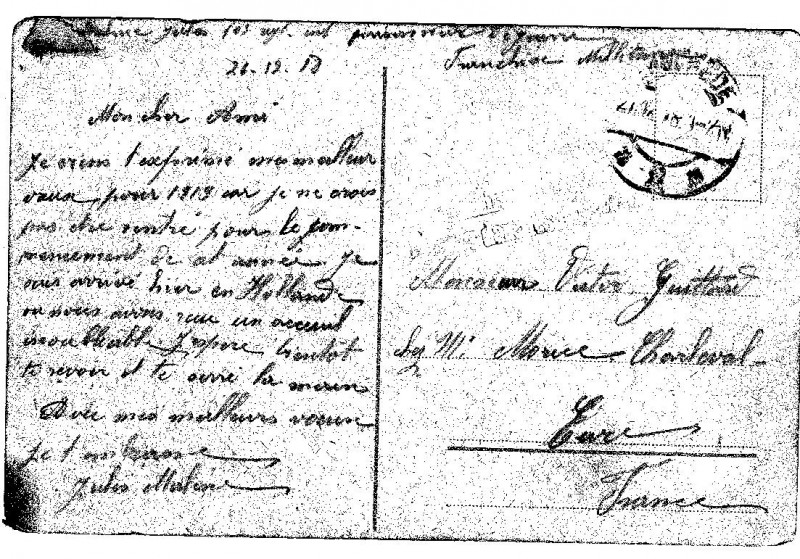 Jules 103 rgt. inf prisonnier de guerre
26.12.18
Franchise Militaire
Mon cher Ami
Je viens t'exprimé mes meilleur
vœux pour 1919 car je ne crois
pas être rentré pour le com-
mencement de cet année. Je
suis arrivé hier en Hollande
ou nous avons reçu un acceuil
inoubliable J'espère bientôt
te revoir et te serré la main
Avec mes meilleurs vœux
je t'embrasse
Jules Malène
Monsieur Victor Guittard
chez Mr Morice Charleval
Eure
France